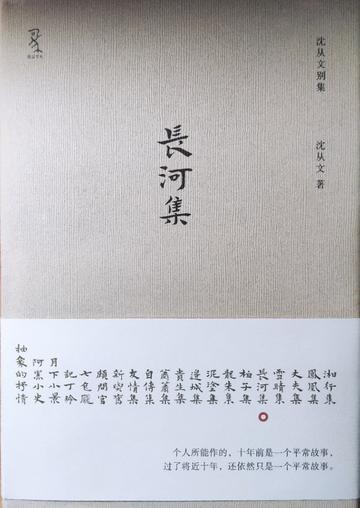 沈从文别集
沈从文 著
長河集
湘行集
鳳凰集
丈夫集
雪晴集
長河集
柏子集
龍朱集
泥塗集
邊城集
貴生集
蕭蕭集
自傳集
友情集
新與舊
顧問官
七色魘
記丁玲
月下小景
阿黑小史
抽象的抒情
个人所能作的，十年前是一个平常故事，
过了将近十年，还依然只是一个平常故事。